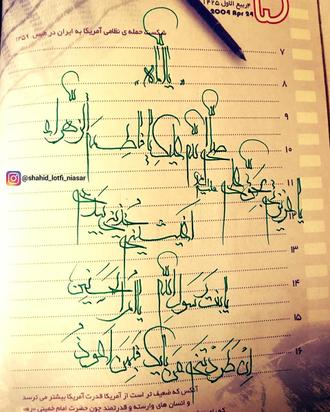 ۴ ربیع الاول ۱۴۲۵
2004 Apr 24
شکست حمله ی نظامی آمریکا به ایران در طبس ۱۳۵۹
۷
یا الله
۸
۹
صلی الله علیک یا فاطمة الزهراء
۱۰
@shahid_lotfi_niasar
۱۱
اغیثینی خذینی بیدی
۱۳
یا بنت رسول الله یا ام الحسنین
۱۴
۱۵
ان طردتنی من بابک فبمن الوذ
۱۶
آنکس که ضعیف تر است از آمریکا قدرت آمریکا بیشتر می ترسد
و انسان های وارسته و قدرتمند چون حضرت امام خمینی «ره»